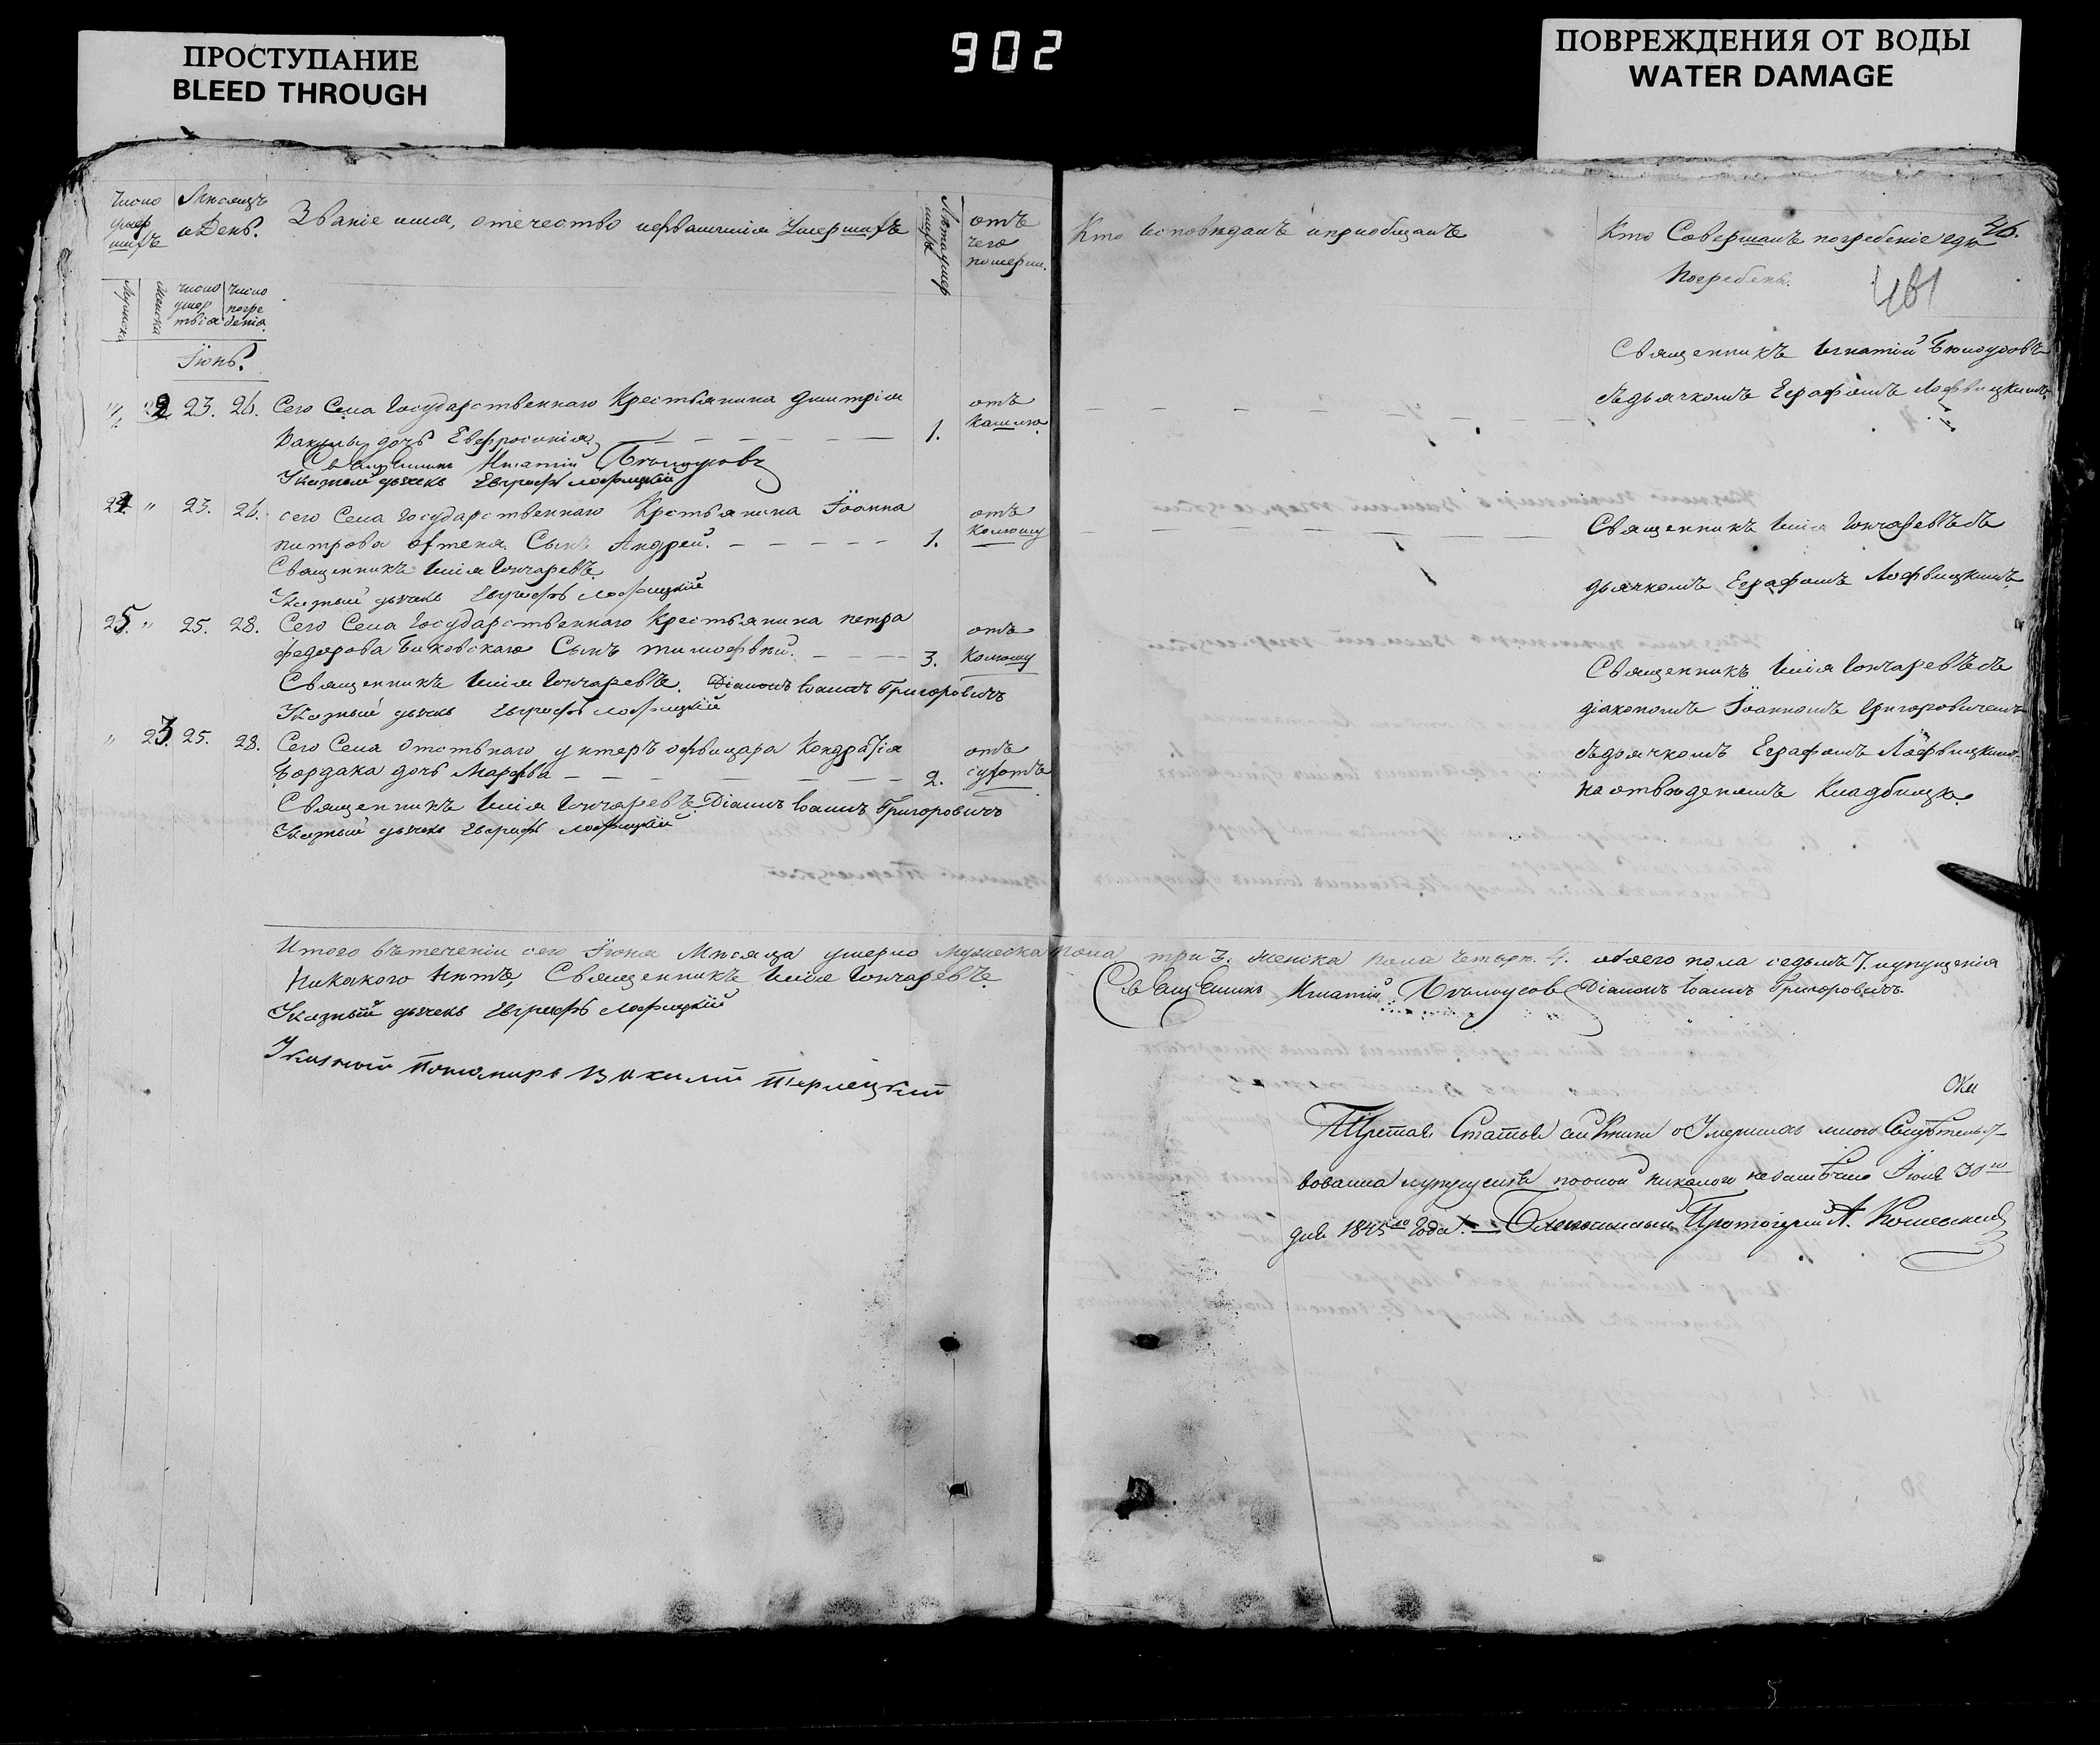 ПРОСТУПАНИЕ
BLEED THROUGH
902
ПОВРЕЖДЕНИЯ ОТ ВОДЫ
WATER DAMAGE
Число умер шихъ
Мѣсяцъ и День.
Званіе имя, отечество и фамилія Умершихъ
Лѣта умер шихъ
отъ чего померли.
Кто исповѣдалъ и приобщалъ
Кто Совершалъ погребеніе и гдѣ
Погребены.
46.
461
Мужска
Женска
число умер твія
число погре бенія
Іюнь.
" 22. 23. 26. Сего Села Государственнаго Крестьянина Димитрія
Вакулы дочь Евфросинія 1. отъ кашлю
Священникъ Игнатій Бѣлоусовъ
Указный дьячекъ Евграфъ Лофицкій
Священникъ Игнатій Бѣлоусовъ
съ дьячкомъ Еграфомъ Лофвицкимъ
24. " 23. 26. Сего Села Государственнаго Крестьянина Іоанна
Петрова Сынъ Андрей. 1. отъ
Священникъ Илія Гончаревъ.
Указный дьячекъ Евграфъ Лофицкій
Священникъ Илія Гончаревъ съ
дьячкомъ Еграфомъ Лофвицкимъ
25. " 25. 28. Сего Села Государственнаго Крестьянина Петра
Федорова Биковскаго Сынъ Тимофѣй. 3. отъ
Священникъ Илія Гончаревъ. Діаконъ Іоаннъ Григоровичъ
Указный дьячекъ Евграфъ Лофицкій
Священникъ Илія Гончаревъ съ
діакономъ Іоанномъ Григоровичемъ
" 23. 25. 28. Сего Села Отставнаго унтеръ офицера Кондратія
Бордака дочь Марфа 2. отъ сухотъ
Священникъ Илія Гончаревъ. Діаконъ Іоаннъ Григоровичъ
Указный дьячекъ Евграфъ Лофицкій
съ дьячкомъ Еграфомъ Лофвицкимъ
на отведеномъ Кладбищѣ.
Итого въ теченіи сего Іюня Мѣсяца умерло мужеска пола три 3. женска пола четыре 4. обоего пола седьмъ 7. и упущенія
Никакого Нѣтъ, Священникъ Илія Гончаревъ.
Священникъ Игнатій Бѣлоусовъ Діаконъ Іоаннъ Григоровичъ
Указный дьячекъ Евграфъ Лофицкій
Указный Пономаръ Василій Терлецкій
Третая Статья сей Книги о Умершихъ мною Свидѣтельст-
вована и упущенія по оной никакого не замѣчено Іюля 30го
дня 1845го Года. Благочинный Протоіерей А.